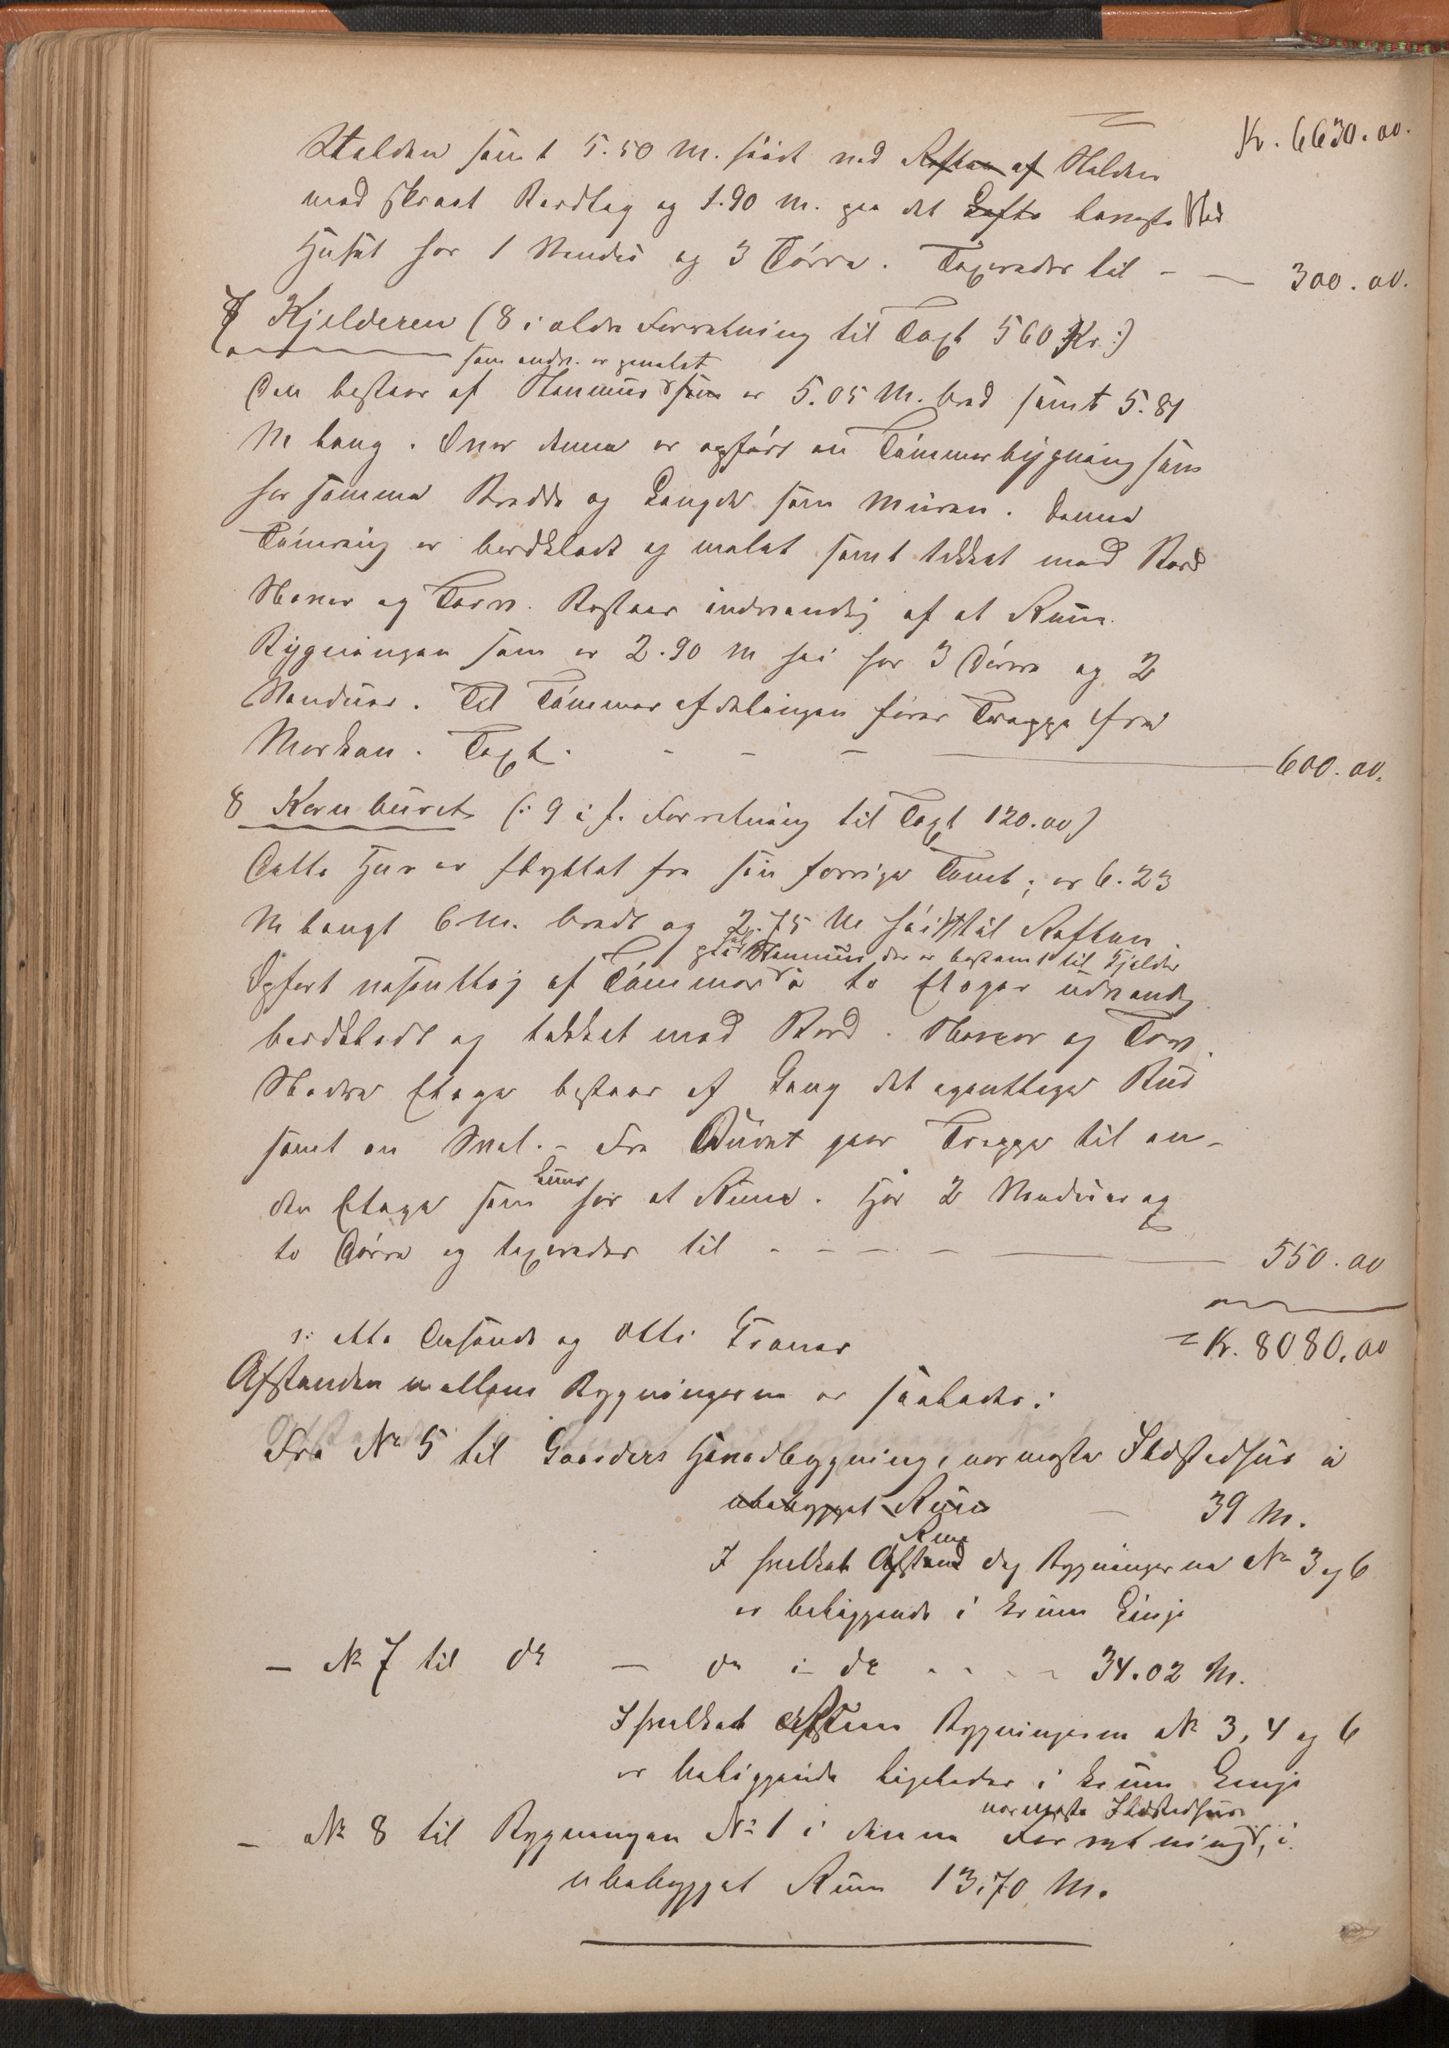 Kr. 6630.00.
Stalden samt 5.50 M. høit ved Raftan af Stalden
med skraat Bordtag og 1.90 M. paa det Lofte laveste Sted
Huset har 1 Vindu og 3 Dørre. Taxeredes til - — 300.00.
7 Kjelderen (8 i ældre Forretning til Taxt 560 Kr.:)
som indv. er gemalet
Den bestaar af Stenmuur som er 5.05 M. bred samt 5.81
M lang. Over denne er opført en Tømmerbygning som
har samme Bredde og Længde som Muren. Denne
Tømring er bordklædt og malet samt tækket med Bord
Næver og Torv. Bestaar indvendig af et Rum.
Bygningen som er 2.90 M høi har 3 Dørre og 2
Vinduer. Til Tømmerafdelingen fører Trappe fra
Marken. Taxt. - - — 600.00.
8 Kornburet (: 9 i f. Forretning til Taxt 120.00)
Dette Huus er flyttet fra sin forrige Tomt; er 6.23
M langt 6 M. bredt og 2.75 M høit til Raftan.
paa Stenmuur der er bestemt til Kjelder
Opført væsentlig af Tømmer i to Etager udvendig
bordklædt og tækket med Bord. Næver og Torv.
Nedre Etage bestaar af Gang det egentlige Bur
samt en Sval. - Fra Buret gaar Trappe til an-
den Etage som kuns har et Rum. Har 2 Vinduer og
to Dørre og taxeredes til - - - - — 550.00
= Kr. 8080.00
s: otte Tusinde og otti Kroner
Afstanden mellem Bygningerne er saaledes:
Fra No 5 til Gaardens Hovedbygning, nærmeste Ildstedhus i
ubebygget Rum — 39 M.
Rum
I hvilket Afstand dog Bygningerne No 3 og 6
er beliggende i krum Linje
— No 7 til do — do i do - - - - 34.02 M.
I hvilket Rum Bygningerne No 3, 4 og 6
er beliggende ligeledes i krum Linje
nærmeste Ildstedhus
— No 8 til Bygningen No 1 i denne Forretning, i
ubebygget Rum 13,70 M.